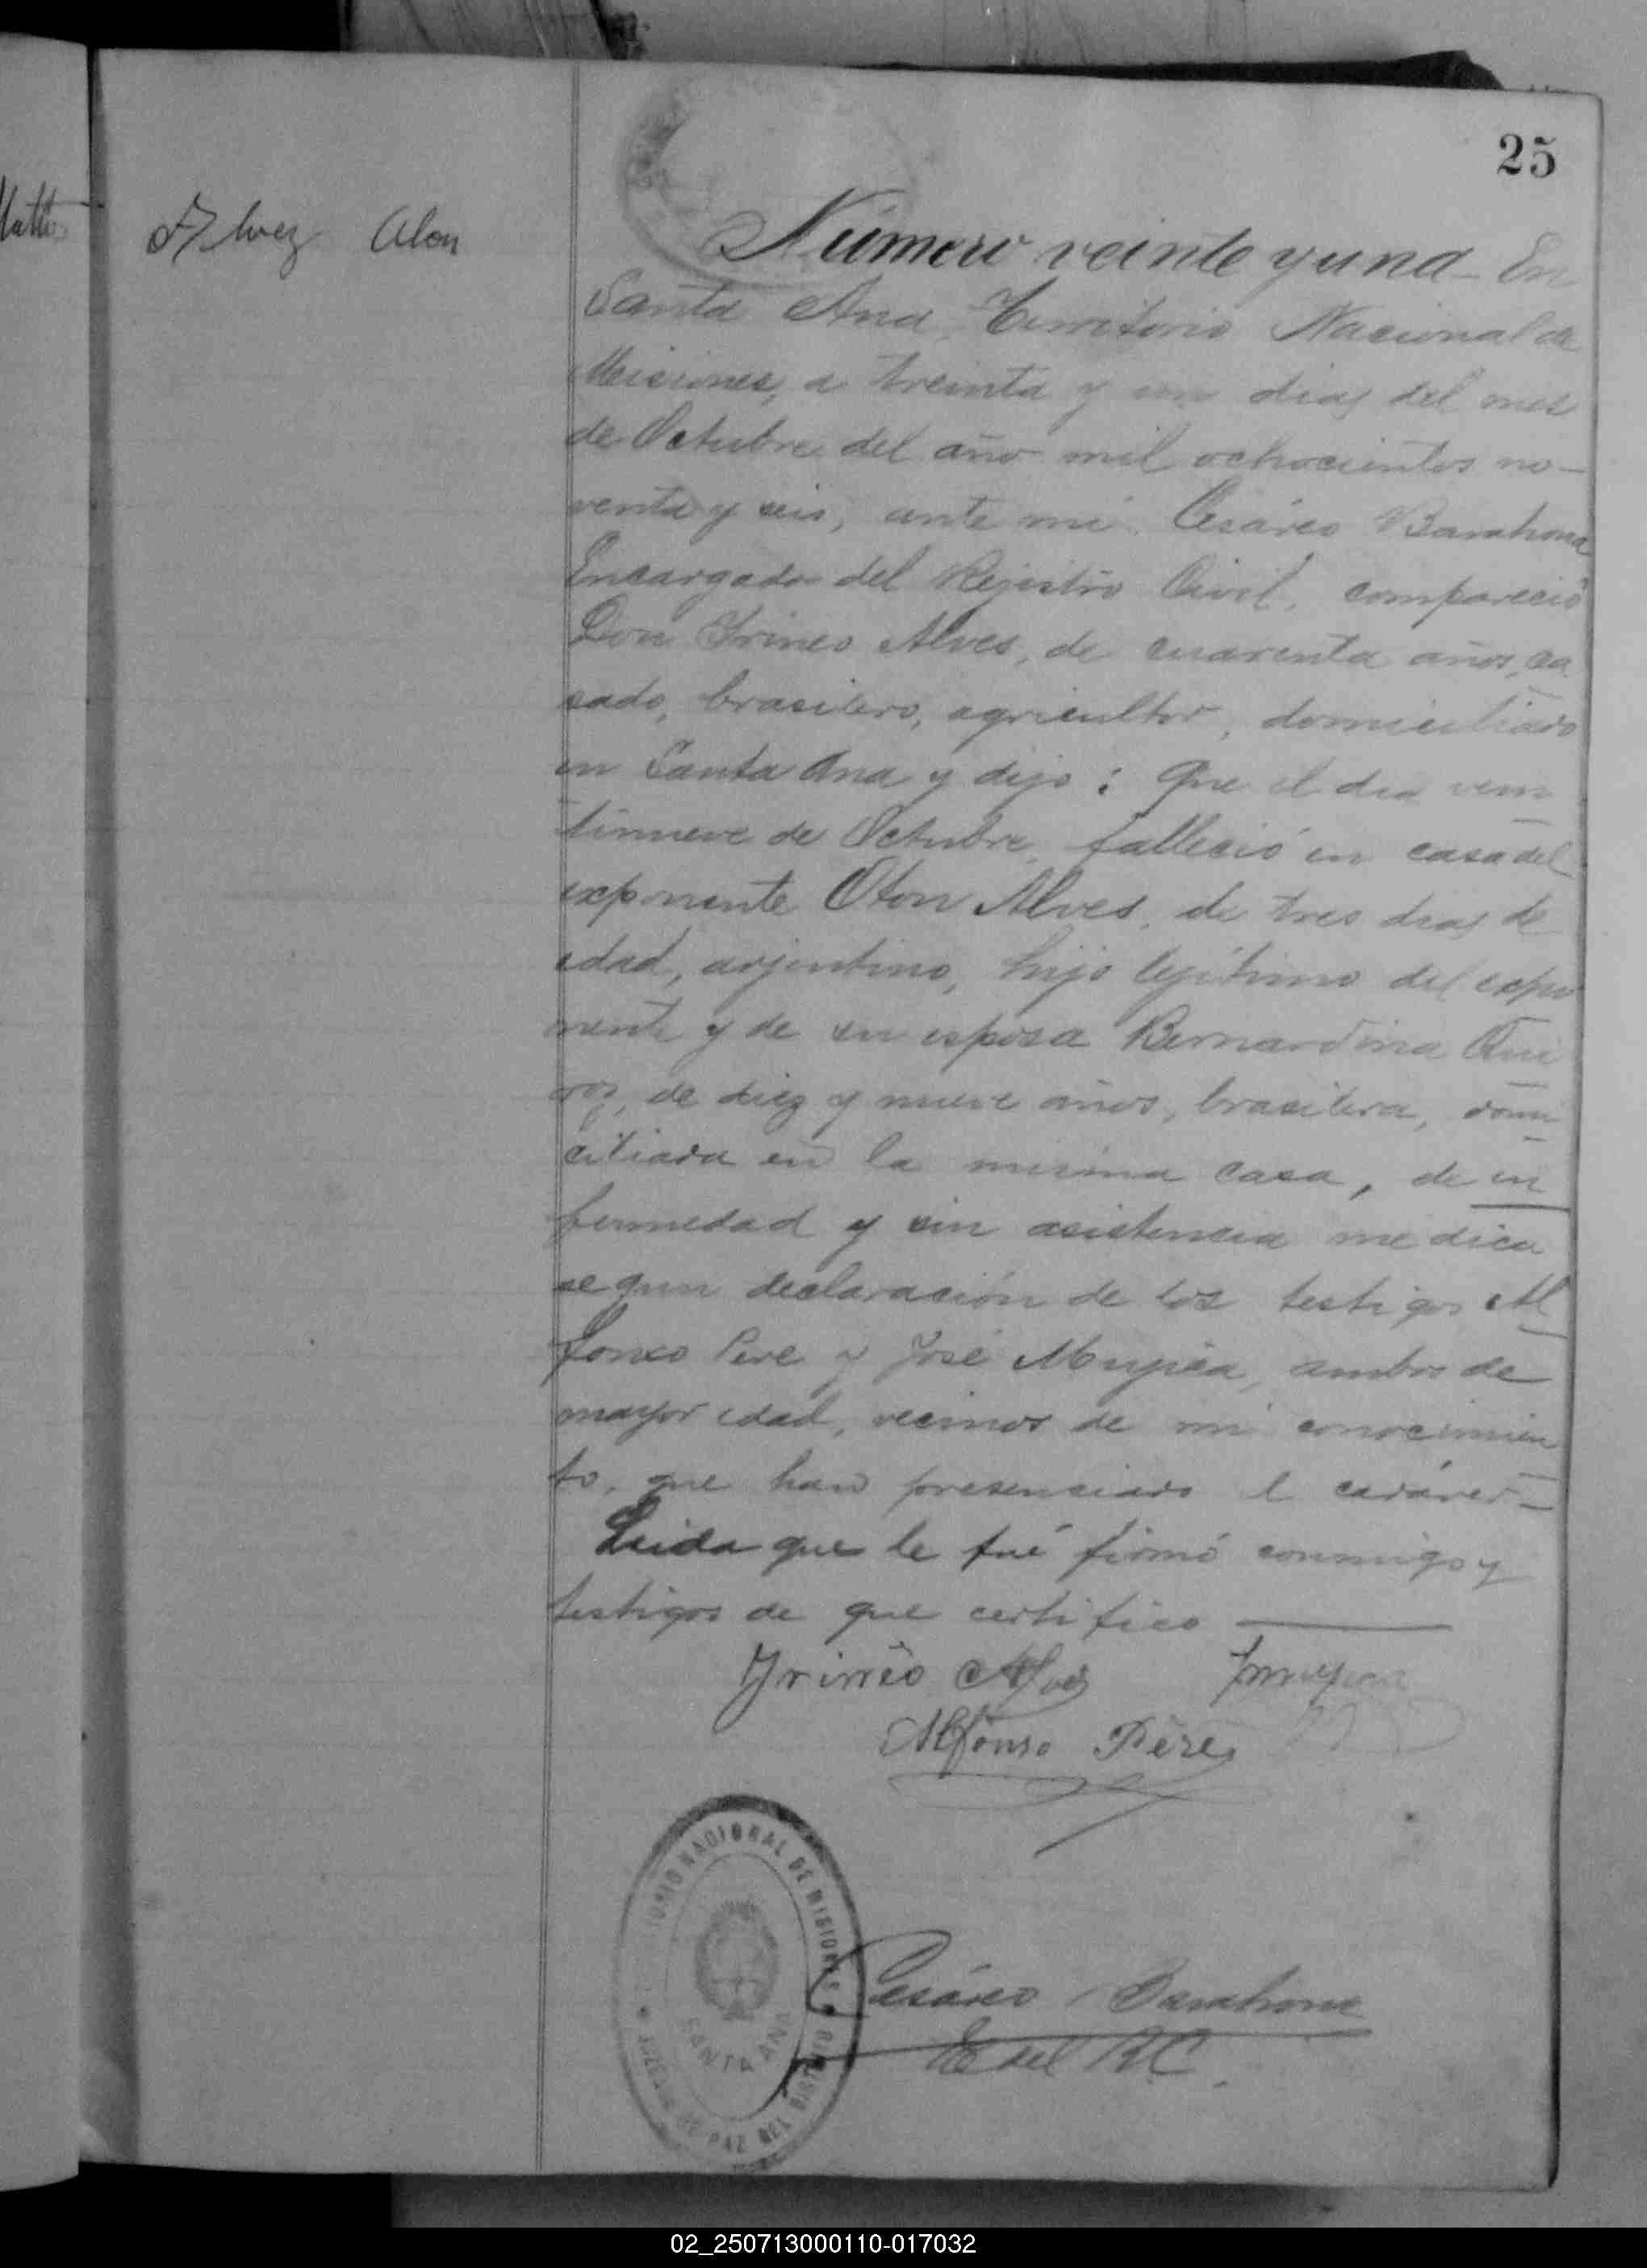 25
Alvez Alon
Número veinte y una En
Santa Ana Territorio Nacional de
Misiones, a treinta y un dias del mes
de Octubre del año mil ochocientos no-
venta y seis, ante mi Cesáreo Barahona
Encargado del Rejistro Civil, compareció
Don Irineo Alves, de cuarenta años, ca
sado, brasilero, agricultor, domiciliado
en Santa Ana y dijo: Que el dia vein
tinueve de Octubre falleció en casa del
exponente Oton Alves, de tres dias de
edad, arjentino, hijo lejítimo del expo
nente y de su esposa Bernardina Qui
roz, de diez y nueve años, brasilera, domi
ciliada en la misma casa, de en
fermedad y sin asistencia medica
segun declaración de los testigos Al
fonso Pere y José Mujica, ambos de
mayor edad, vecinos de mi conocimien
to, que han presenciado el cadáver-
Leida que le fué firmó conmigo y
testigos de que certifico
Irinêo Alvez
Alfonso Péres
TERRITORIO NACIONAL DE MISIONES
SANTA ANA
JUZGADO DE PAZ DEL DISTRITO
Cesáreo Barahona
E del R.C.
02_250713000110-017032